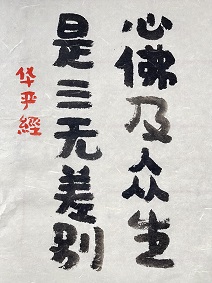 心佛及众生
是三无差别
华严经